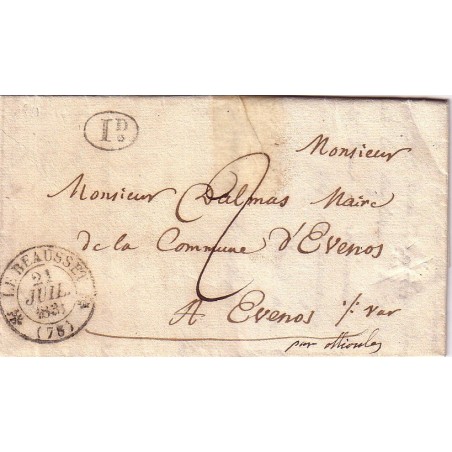 1D
Monsieur
2
Monsieur Dalmas Maire
de la Commune d'Evenos
A Evenos /: var
par ollioules
LE BEAUSSET
21
JUIL.
1831
(78)